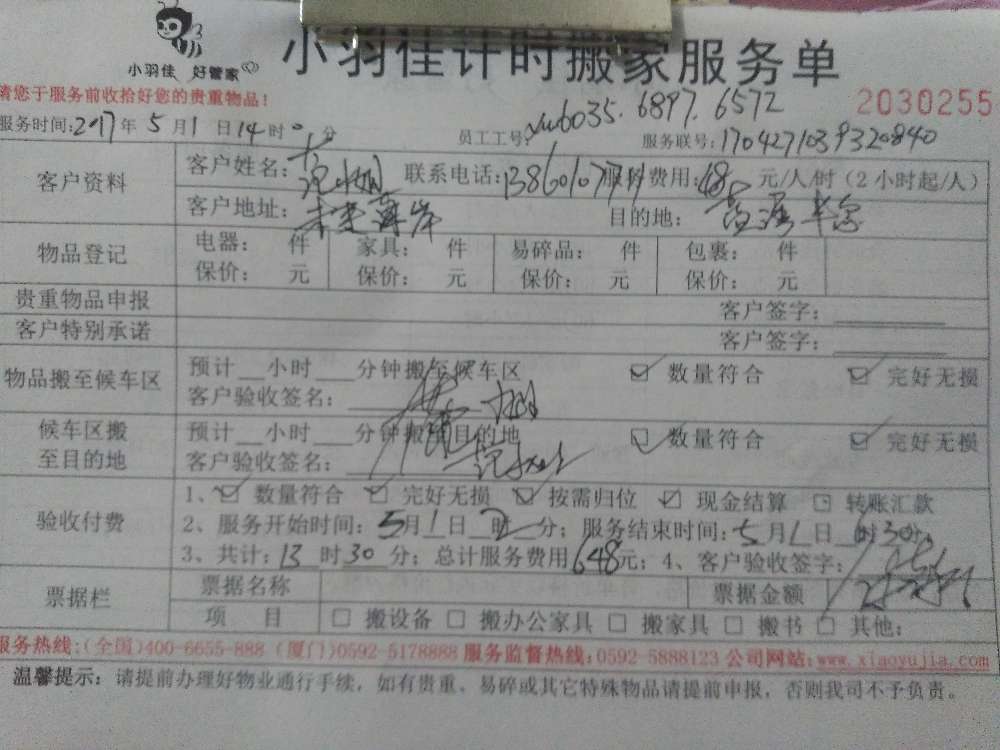 小羽佳 好管家
小羽佳计时搬家服务单
请您于服务前收拾好您的贵重物品！
2030255
服务时间:2017年5月1日14时0分 员工工号:xm6035.6897.6572 服务联号:1704271039320840
客户资料
客户姓名: 联系电话: 服务费用:48元/人/时（2小时起/人）
客户地址:未来海岸 目的地:
物品登记
电器: 件 家具: 件 易碎品: 件 包裹: 件
保价: 元 保价: 元 保价: 元 保价: 元
贵重物品申报 客户签字:
客户特别承诺 客户签字:
物品搬至候车区
预计__小时___分钟搬至候车区 数量符合 完好无损
客户验收签名:
候车区搬
至目的地
预计__小时___分钟搬至目的地 数量符合 完好无损
客户验收签名:
验收付费
1、数量符合 完好无损 按需归位 现金结算 转账汇款
2、服务开始时间:5月1日2时分; 服务结束时间:5月1日 时30分,
3、共计:13时30分; 总计服务费用648元; 4、客户验收签字:
票据栏
票据名称 票据金额
项 目 □ 搬设备 □ 搬办公家具 □ 搬家具 □ 搬书 □ 其他:
服务热线:(全国)400-6655-888 (厦门)0592-5178888 服务监督热线:0592-5888123 公司网站:www.xiaoyujia.com
温馨提示: 请提前办理好物业通行手续，如有贵重、易碎或其它特殊物品请提前申报，否则我司不予负责。